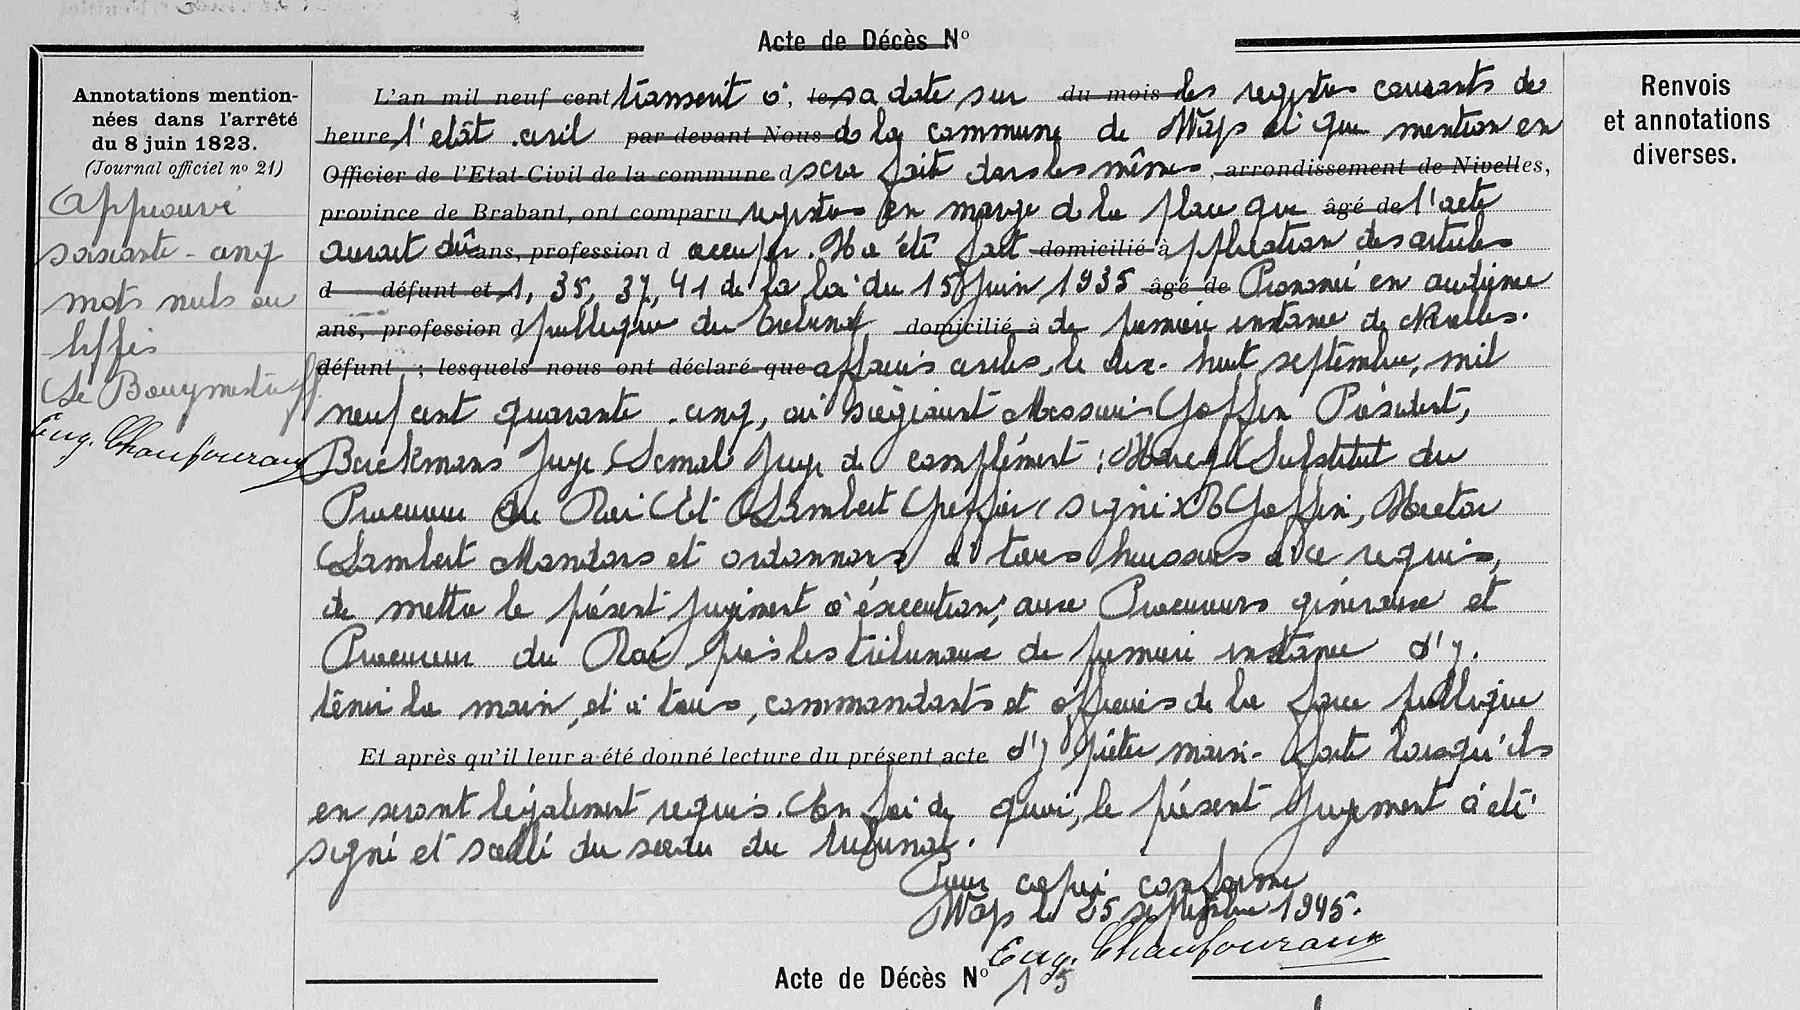 Acte de Décès N°
Annotations mention-
nées dans l'arrêté
du 8 juin 1823.
(Journal officiel n° 21)
Approuvé
soixante-cinq
mots nuls ou
biffés
Le Bourgmestre ff
Eug. Chaufouraux
L'an mil neuf cent transcrit à, le sa date sur du mois les registres courants de
heure l'etât civil par devant Nous de la commune de Ways et que mention en
Officier de l'Etat-Civil de la commune d sera faite dans les mêmes, arrondissement de Nivelles,
province de Brabant, ont comparu registres en marge de la place que âgé de l'acte
aurait dû ans, profession d occuper. Il a été fait domicilié à pplication des articles
d défunt et 1, 35, 37, 41 de la loi du 15 Juin 1935 âgé de Prononcé en audience
ans, profession d publique du tribunal domicilié à de premiere instance de Nivelles.
défunt ; lesquels nous ont déclaré que affaires civiles, le dix-huit septembre, mil
neuf cent quarante-cinq, où siégeaient Messieurs Goffin Président,
Boeckmans Juge Semal Juge de complément ; Substitut du
Procureur du Roi Et Lambert Greffier signé R Goffin, Hector
Lambert Mandons et ordonnons à tous huissiers à ce requis,
de mettre le présent jugement à éxecution; aux Procureurs généraux et
Procureur du Roi près les tribunaux de premiere instance d'y.
tenir la main, et à tous, commandants et officiers de la force publique
Et après qu'il leur a été donné lecture du présent acte d'y prêter main-forte lorsqu'ils
en seront légalement requis. En foi de quoi, le présent Jugement a été
signé et scellé du sceau du tribunal.
Pour copie conforme
Ways le 25 septembre 1945.
Eug. Chaufouraux
Acte de Décès N° 15
Renvois
et annotations
diverses.